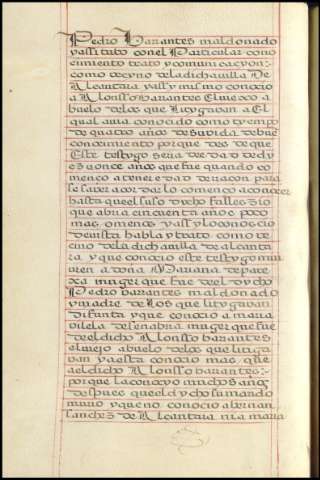 Pedro barantes maldonado
yassi tubo con el Particular cono
cimiento trato y comunicacyon:
como becyno de la dicha villa De
Alcantara yassy mismo conocio
a Alonsso barantes El viexo a
buelo delos que lytygavan a El
qual avia conocido como tyempo
de quatro años de su bida de bue
conocimiento porque des de que
Este testygo seria de edad de dy
ez y once años que fue quando co
menço a tener edad de rraçon para
se saver acordar lo començo a conocer
hasta que el suso dycho fallezcio
que abria cincuenta años poco
mas, o menos y assy lo conoscio
de vista habla y trato como ve
cino de la dicha villa de alcanta
ra, y que conocio este testygo mu
y bien a doña Mariana de pare
xa muger que fue del dycho
Pedro barantes maldonado
y madre de los que lytygavan
difunta y que conocio a maria
vilela de senabria muger que fue
de el dicho Alonsso barantes
el viejo abuelo delos que litiga
van y a esta conocio mas que
a el dicho Alonsso barantes:-
porque la conocyo muchos años
despues que el dycho su marido
murio y que no conocio a hernan
sanchez de Alcantara ni a maria